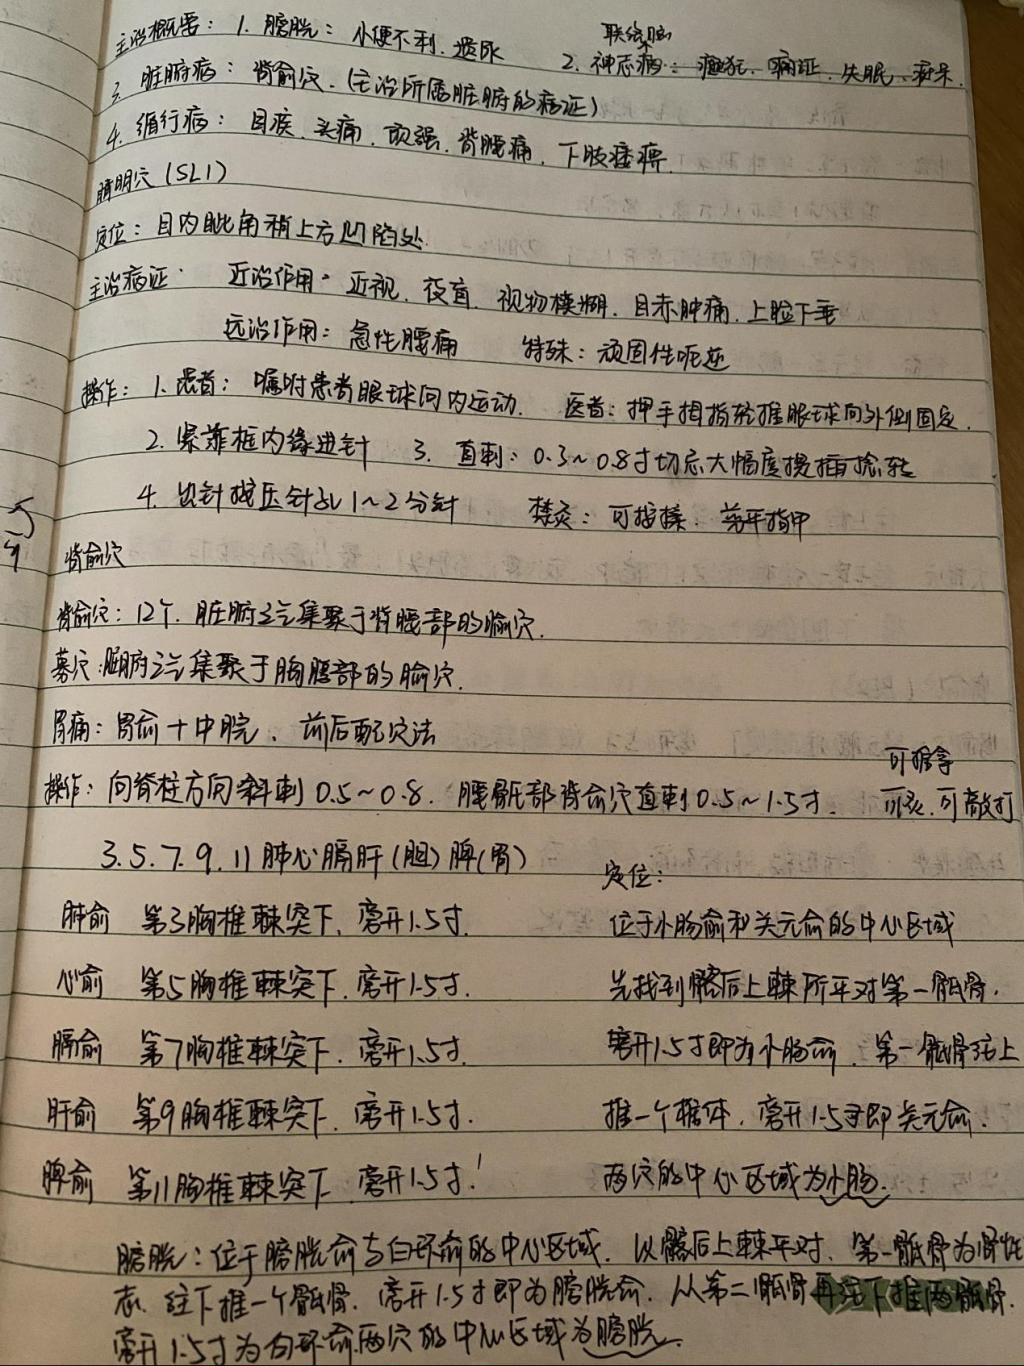 联络脑
主治概要：1. 膀胱：小便不利、遗尿 2. 神志病：癫狂、痫证、失眠、痴呆.
3. 脏腑病：背俞穴.(主治所属脏腑的病证)
4. 循行病：目疾、头痛、项强、背腰痛、下肢痿痹.
睛明穴(SL1)
定位：目内眦角稍上方凹陷处.
主治病证 近治作用：近视、夜盲、视物模糊、目赤肿痛、上睑下垂
远治作用：急性腰痛 特殊：顽固性呃逆
操作：1. 患者：嘱咐患者眼球向内运动. 医者：押手拇指轻推眼球向外侧固定.
2. 紧靠框内缘进针 3. 直刺：0.3～0.8寸切忌大幅度提插捻转
4. 出针按压针孔1～2分针 禁灸：可按揉、剪平指甲
背俞穴
背俞穴：12个. 脏腑之气集聚于背腰部的腧穴.
募穴：脏腑之气集聚于胸腹部的腧穴.
胃痛：胃俞+中脘、前后配穴法
可捏拿
操作：向脊柱方向斜刺0.5～0.8. 腰骶部背俞穴直刺0.5～1.5寸. 可灸.可敲打
3.5.7.9.11肺心膈肝(胆)脾(胃)
定位：
肺俞 第3胸椎棘突下、旁开1.5寸. 位于小肠俞和关元俞的中心区域
心俞 第5胸椎棘突下.旁开1.5寸. 先找到髂后上棘所平对第一骶骨.
膈俞 第7胸椎棘突下.旁开1.5寸. 旁开1.5寸即为小肠俞.第一骶骨往上
肝俞 第9胸椎棘突下.旁开1.5寸. 推一个椎体.旁开1.5寸即关元俞.
脾俞 第11胸椎棘突下.旁开1.5寸. 两穴的中心区域为小肠.
膀胱：位于膀胱俞与白环俞的中心区域. 以髂后上棘平对.第一骶骨为骨性
志.往下推一个骶骨.旁开1.5寸即为膀胱俞.从第二骶骨再往下推两骶骨.
旁开1.5寸为白环俞两穴的中心区域为膀胱.